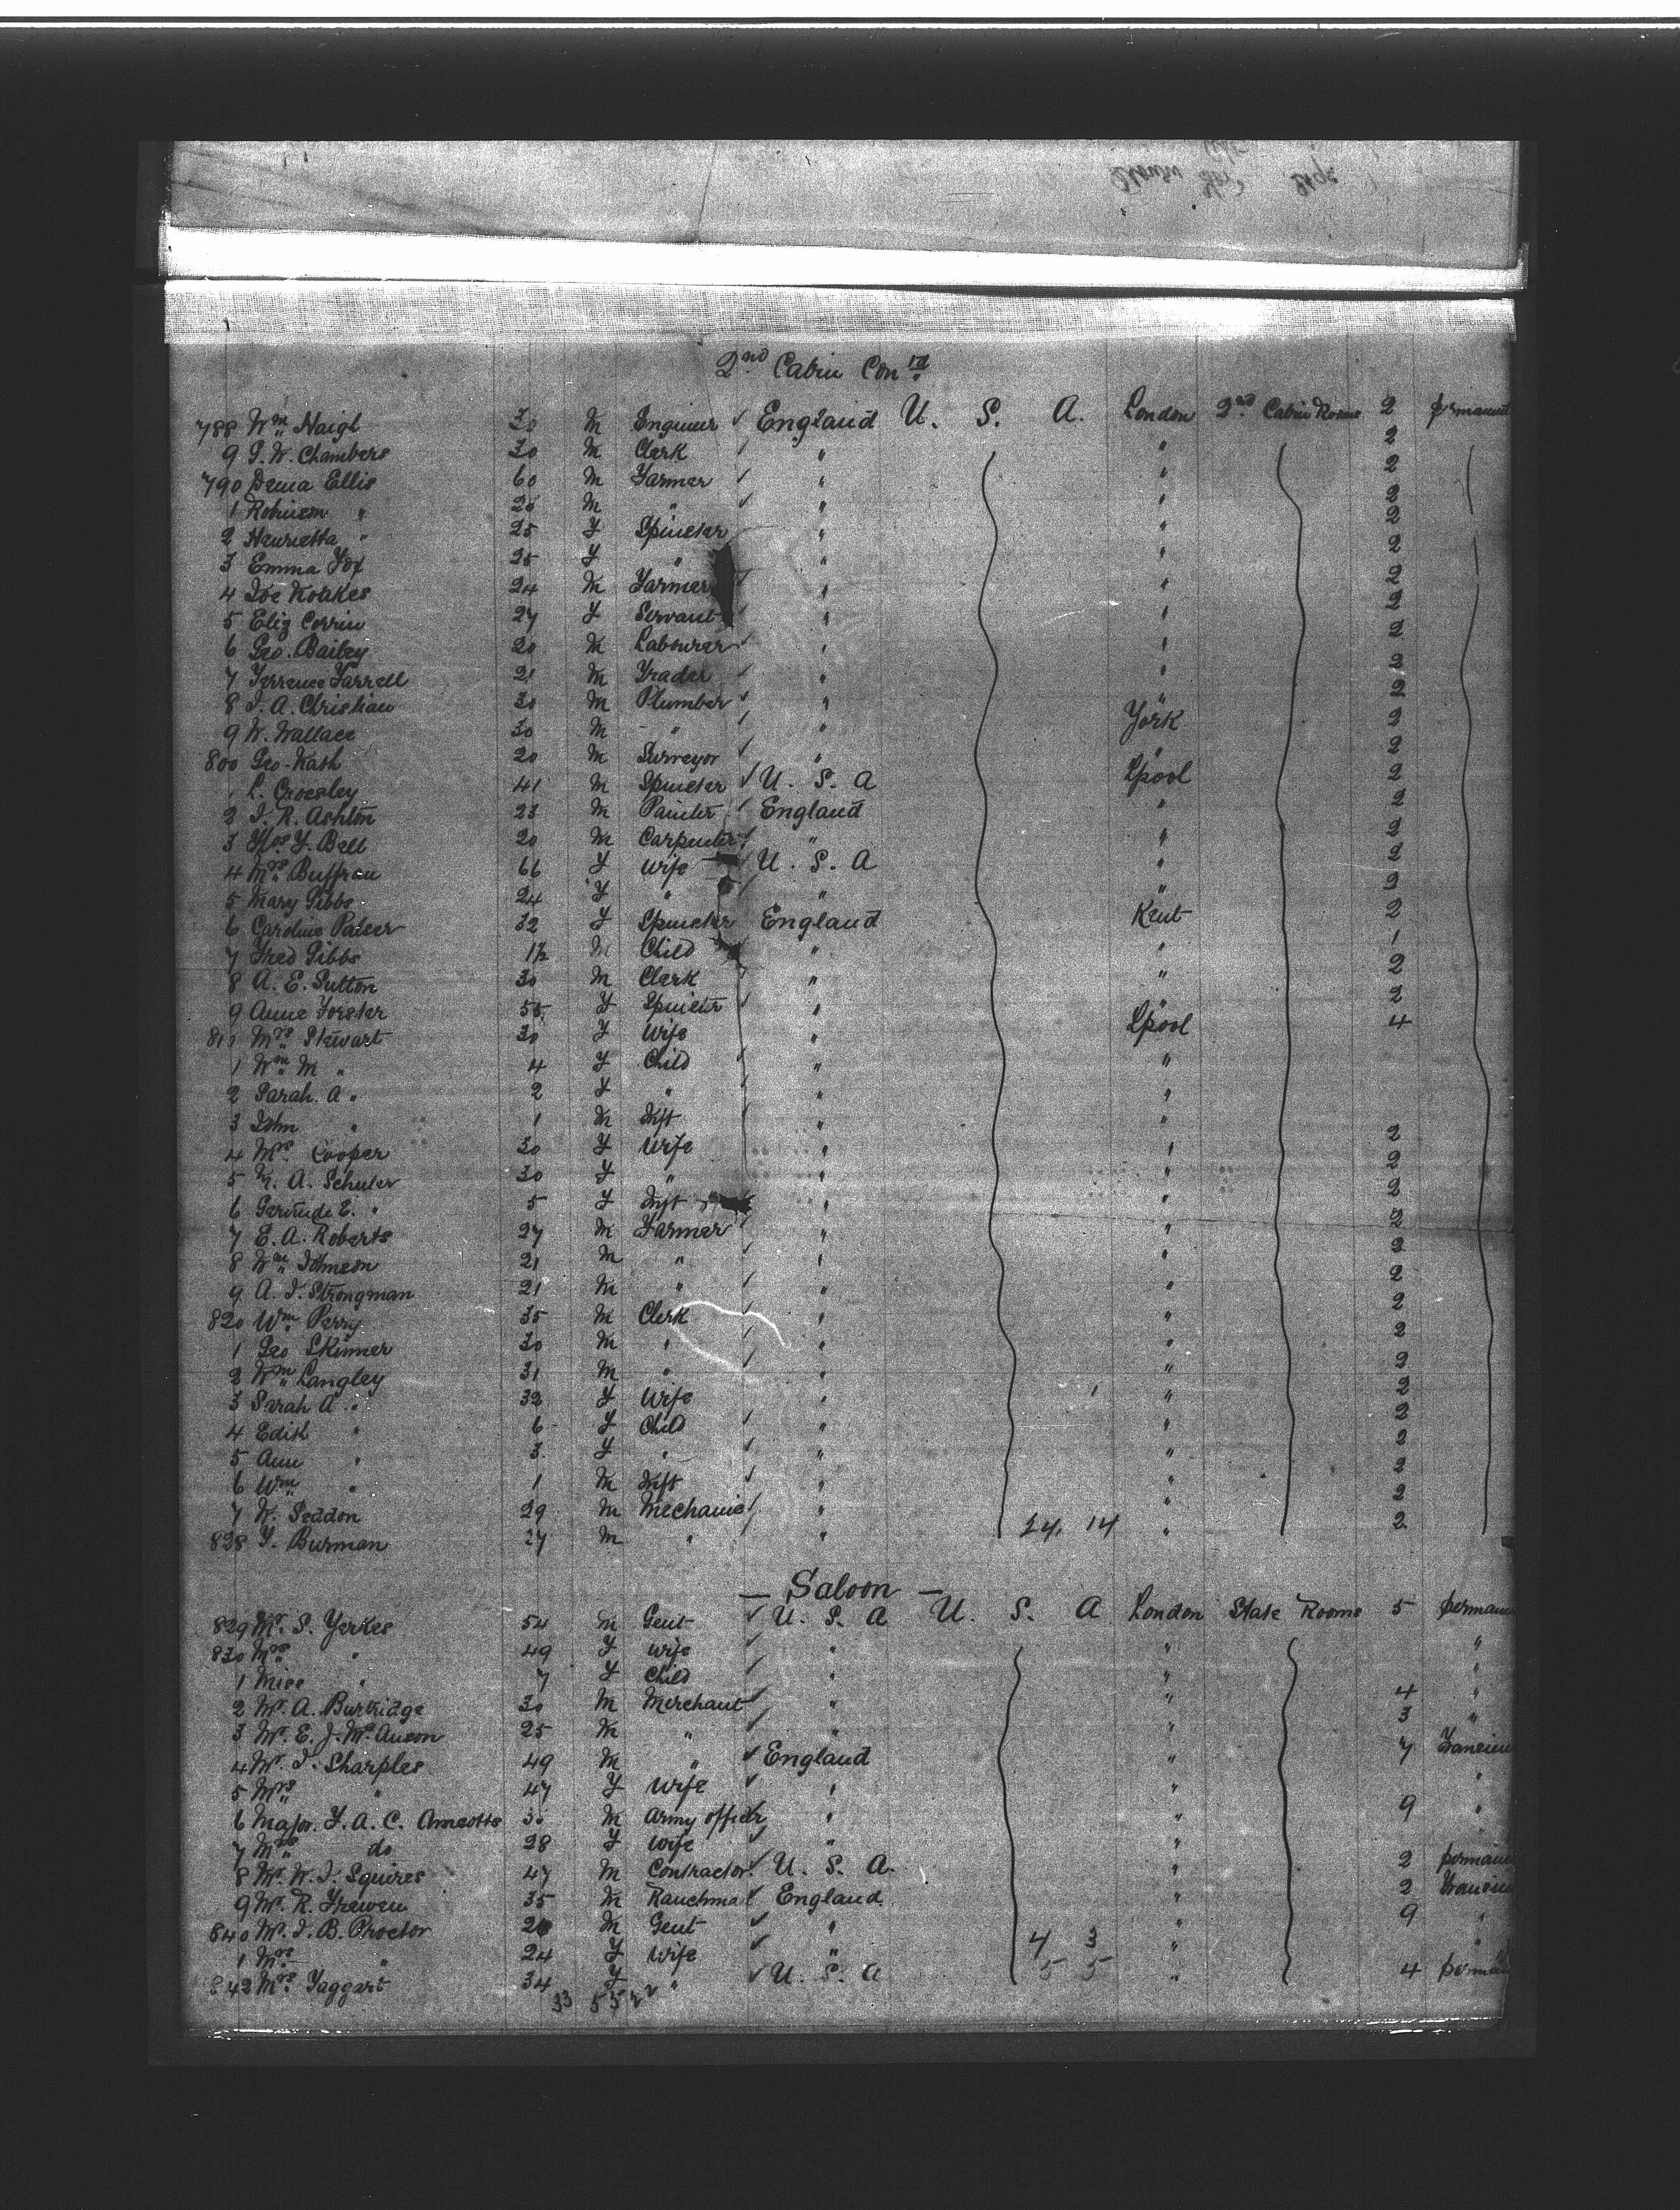 2nd Cabin Contd
788 Wm Haigh 30 M Engineer ✓ England U. S. A. London 2nd Cabin Rooms 2 permanent
9 J. W. Chambers 30 M Clerk ✓ " " 2
790 Ellis 60 M Farmer ✓ " " 2
1 " M " ✓ " " 2
2 Henrietta " 25 F Spinster " " 2
3 Emma Fox 25 F " " " 2
4 Joe 24 M Farmer " " 2
5 Eliz Corrin 27 F Servant " " 2
6 Geo. Bailey 20 M Labourer ✓ " " 2
7 Terrence Farrell 21 M Trader ✓ " " 2
8 J. A. Christian 30 M Plumber ✓ " " 2
9 W. Wallace 30 M " ✓ " York 2
800 Geo. Nash 20 M Surveyor ✓ " " 2
1 L. Crossley 41 M Spinster ✓ U. S. A Lpool 2
2 J. R. Ashton 23 M Painter ✓ England " 2
3 Thos Y. Bell 20 M Carpenter ✓ " " 2
4 Mrs 66 F Wife ✓ U. S. A " 2
5 Mary Gibbs 24 F " ✓ " " 2
6 Caroline 32 F Spinster England Kent 2
7 Fred Gibbs 1½ M Child " " 1
8 A. E. Sutton 30 M Clerk ✓ " " 2
9 Anne Forster 55 F Spinster ✓ " 2
810 Mrs Stewart 30 F Wife " Lpool 4
1 Wm M " 4 F Child ✓ " "
2 Sarah. A " 2 F " ✓ " "
3 John " 1 M Inft ✓ " "
4 Mrs. Cooper 30 F Wife " " 2
5 M. A. Schuler 30 F " " " 2
6 Gertrude E. " 5 F Inft " 2
7 E. A. Roberts 27 M Farmer ✓ " " 2
8 Wm 21 M " ✓ " " 2
9 A. J. Strongman 21 M " ✓ " " 2
820 Wm Perry 35 M Clerk ✓ " " 2
1 Geo Skinner 30 M " ✓ " " 2
2 Wm Langley 31 M " ✓ " " 2
3 Sarah A " 32 F Wife " " 2
4 Edith " 6 F Child ✓ " " 2
5 Ann " 3 F " ✓ " " 2
6 Wm " 1 M Inft ✓ " " 2
7 W. Seddon 29 M Mechanic ✓ " " 2
828 T. Burman 27 M " ✓ " 24, 14 " 2
— Saloon —
829 Mr. S. Yerkes 54 M Gent ✓ U. S. A U. S. A London State Rooms 5
830 Mrs " 49 F Wife ✓ " " "
1 Miss " 7 F Child ✓ " " "
2 Mr. A. Burkridge 30 M Merchant ✓ " " 4 "
3 Mr. E. J. 25 M " ✓ " " 3 "
4 Mr. J. Sharples 49 M " ✓ England " 7
5 Mrs " 47 F Wife ✓ " " "
6 Major. F. A. C. Amcotts M Army officer ✓ " " 9 "
7 Mrs do 28 F Wife ✓ " "
8 Mr. W. J. Squires 47 M Contractor ✓ U. S. A. " 2
9 Mr. R. Frewen 35 M Ranchman ✓ England " 2
840 Mr. J. B. Proctor M Gent ✓ " 4 3 " 9 "
1 Mrs " 24 F Wife ✓ " 5 5 " "
842 Mrs. Taggart 34 F " ✓ U. S. A " 4
33 55